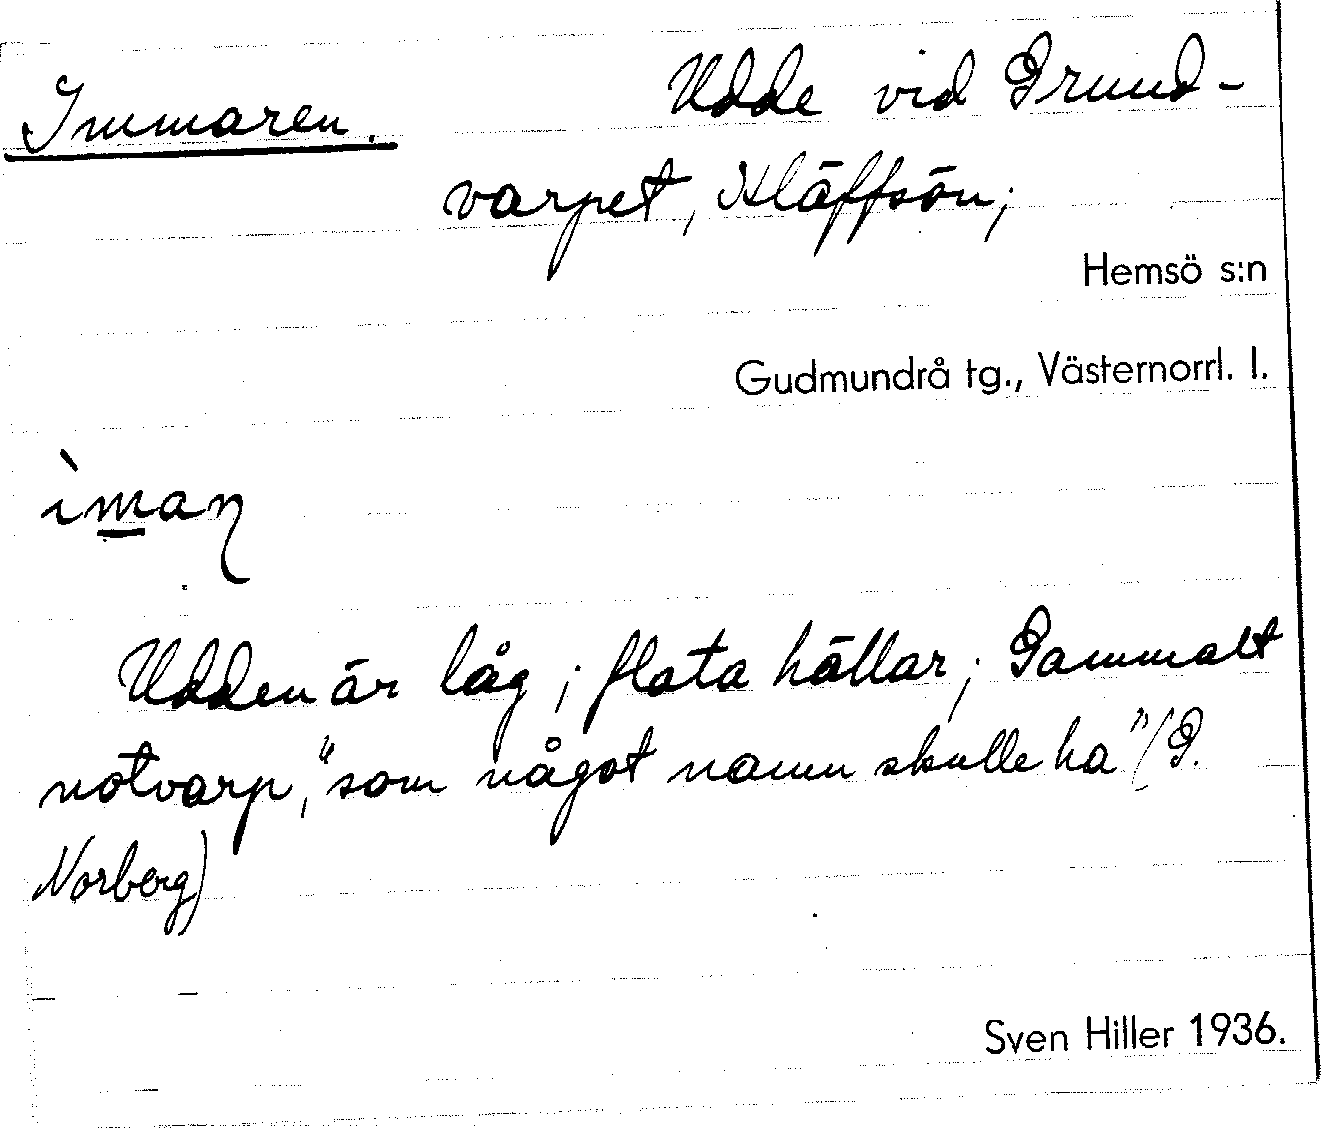 Immaren. Udde vid Grund-
varpet, Kläffsön;
Hemsö s:n
Gudmundrå tg., Västernorrl. l.
ìmaɳ
Udden är låg; flata hällar; Gammalt
notvarp, "som något namn skulle ha" (G.
Norberg)
Sven Hiller 1936.